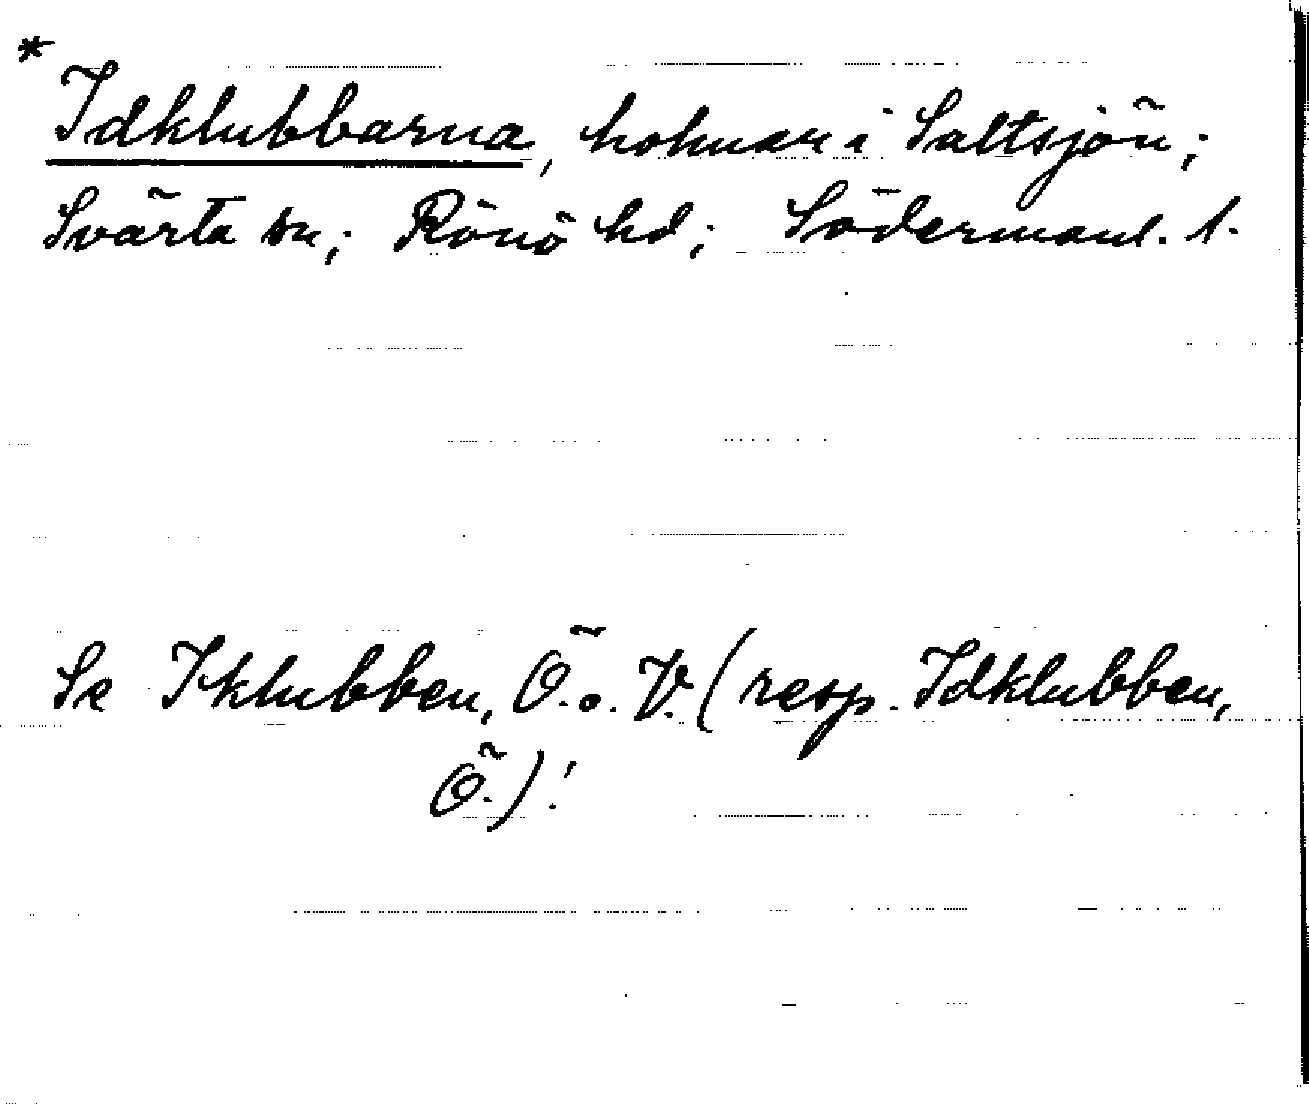 * Idklubbarna, holmar i Saltsjön;
Svärta sn; Rönö hd; Södermanl. l.
Se Iklubben, Ö. o. V. (resp. Idklubben,
Ö.)!